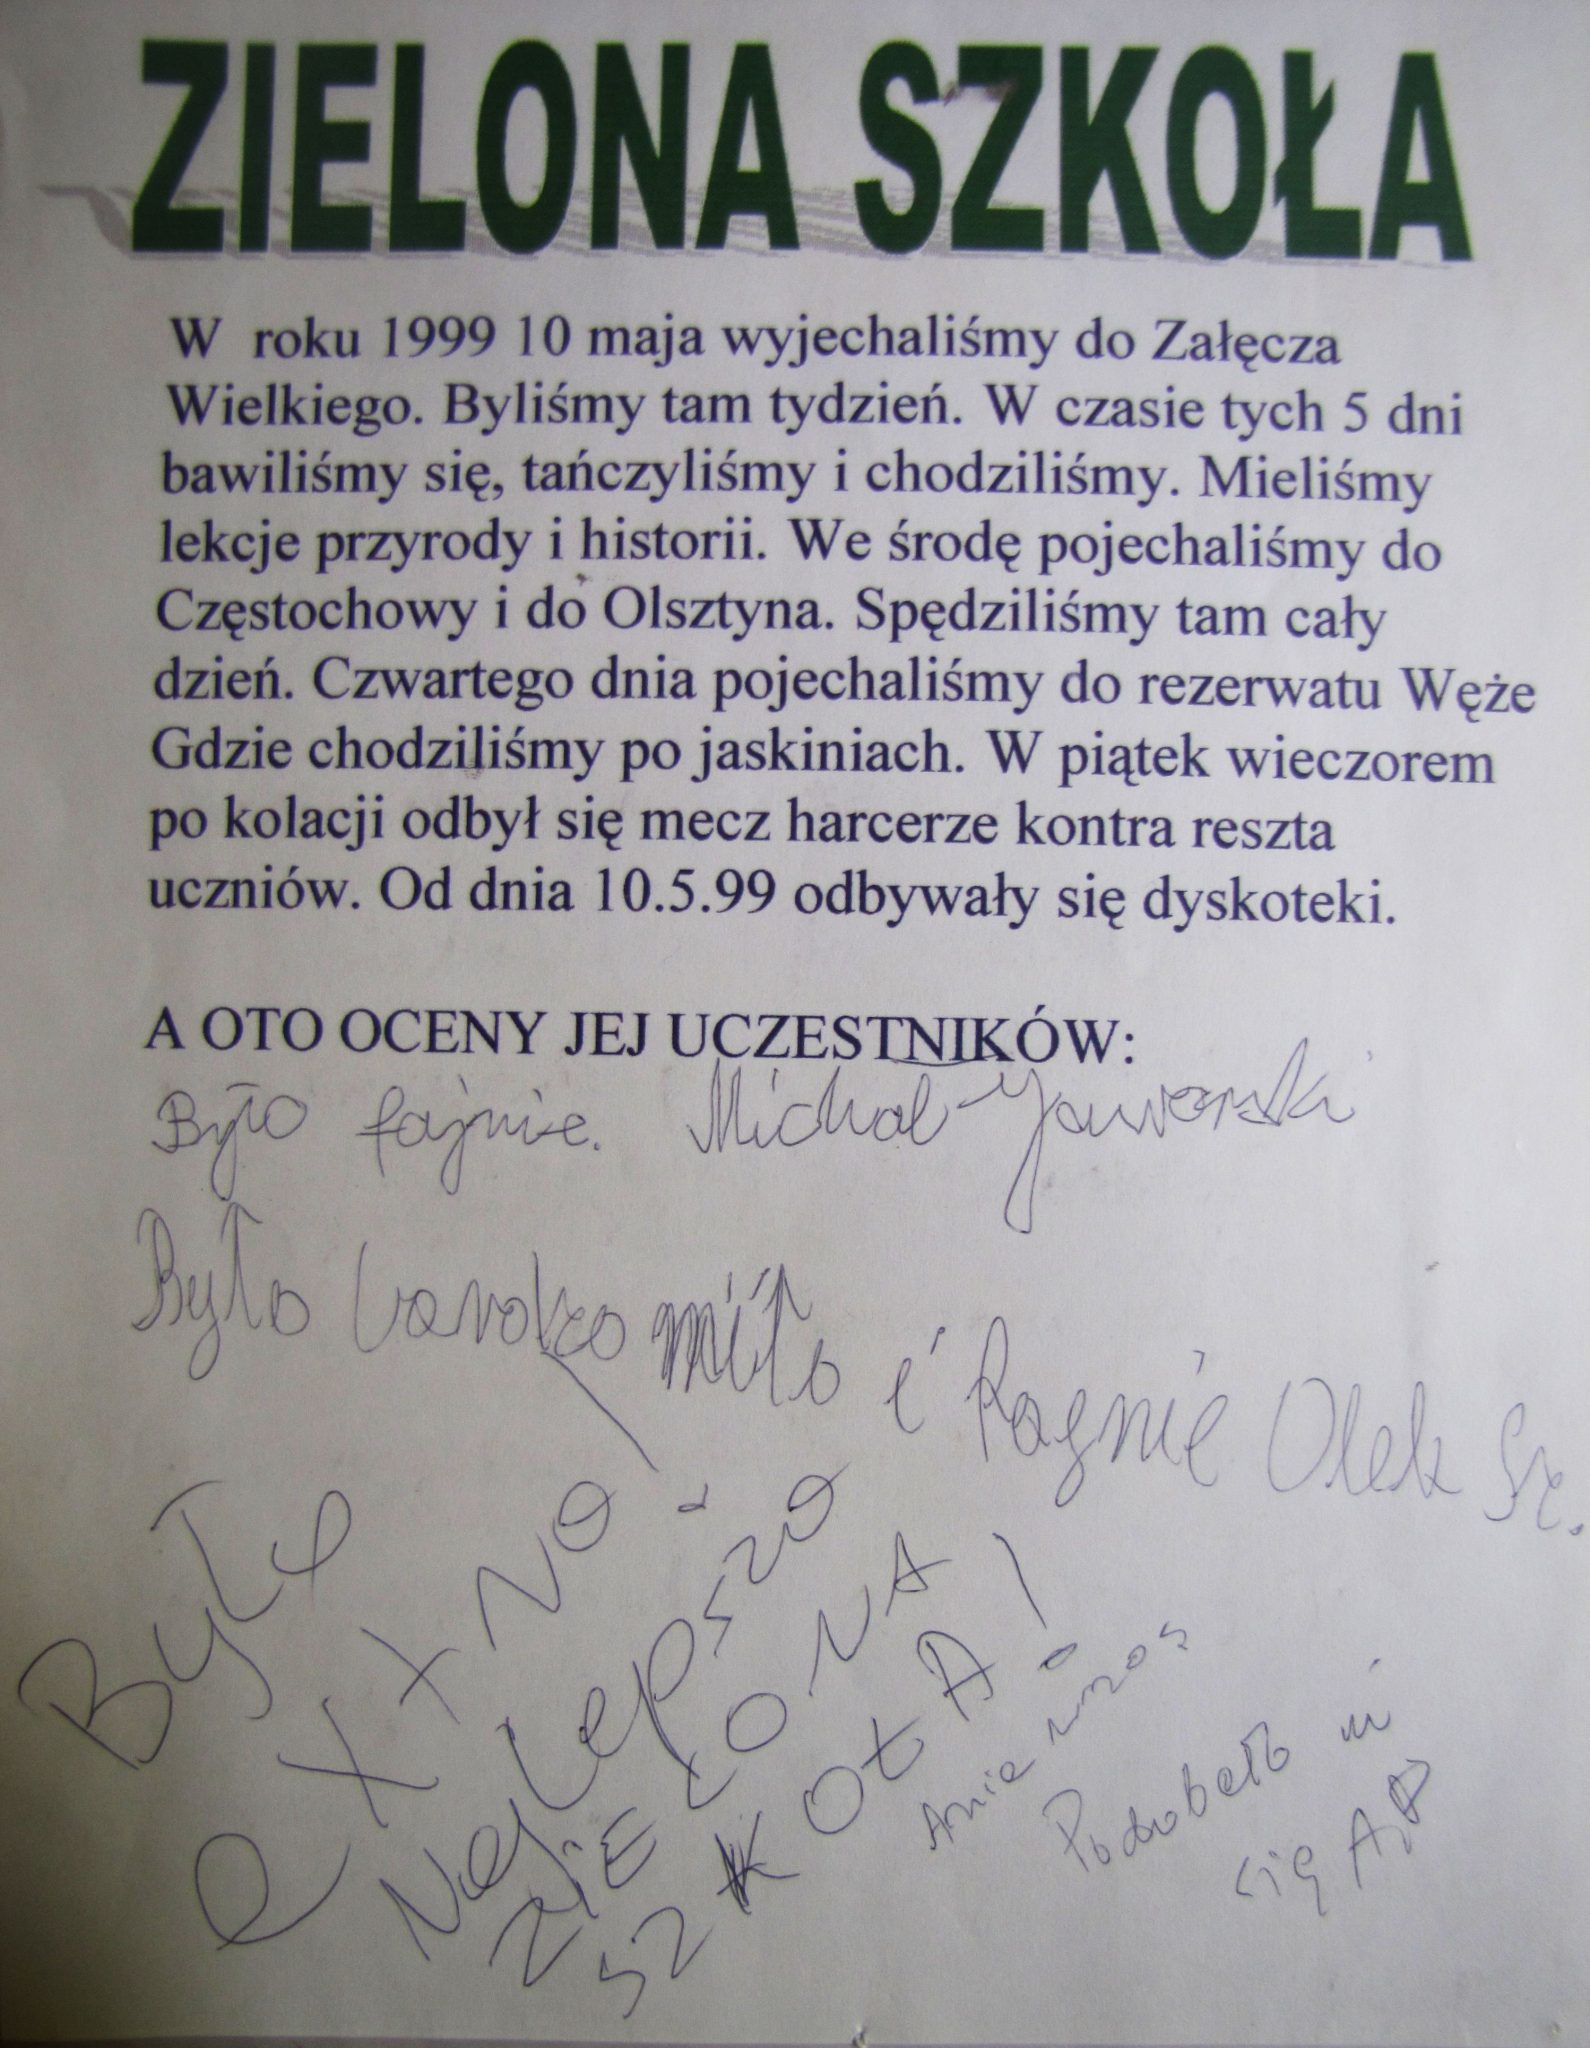 ZIELONA SZKOŁA
W roku 1999 10 maja wyjechaliśmy do Załęcza
Wielkiego. Byliśmy tam tydzień. W czasie tych 5 dni
bawiliśmy się, tańczyliśmy i chodziliśmy. Mieliśmy
lekcje przyrody i historii. We środę pojechaliśmy do
Częstochowy i do Olsztyna. Spędziliśmy tam cały
dzień. Czwartego dnia pojechaliśmy do rezerwatu Węże
Gdzie chodziliśmy po jaskiniach. W piątek wieczorem
po kolacji odbył się mecz harcerze kontra reszta
uczniów. Od dnia 10.5.99 odbywały się dyskoteki.
A OTO OCENY JEJ UCZESTNIKÓW:
Było fajnie. Michał Jaworski
Było bardzo miło i Olek
Było
extra!
Najlepsza
ZIELONA
SZKOŁA!
Ania
Podobało mi
się